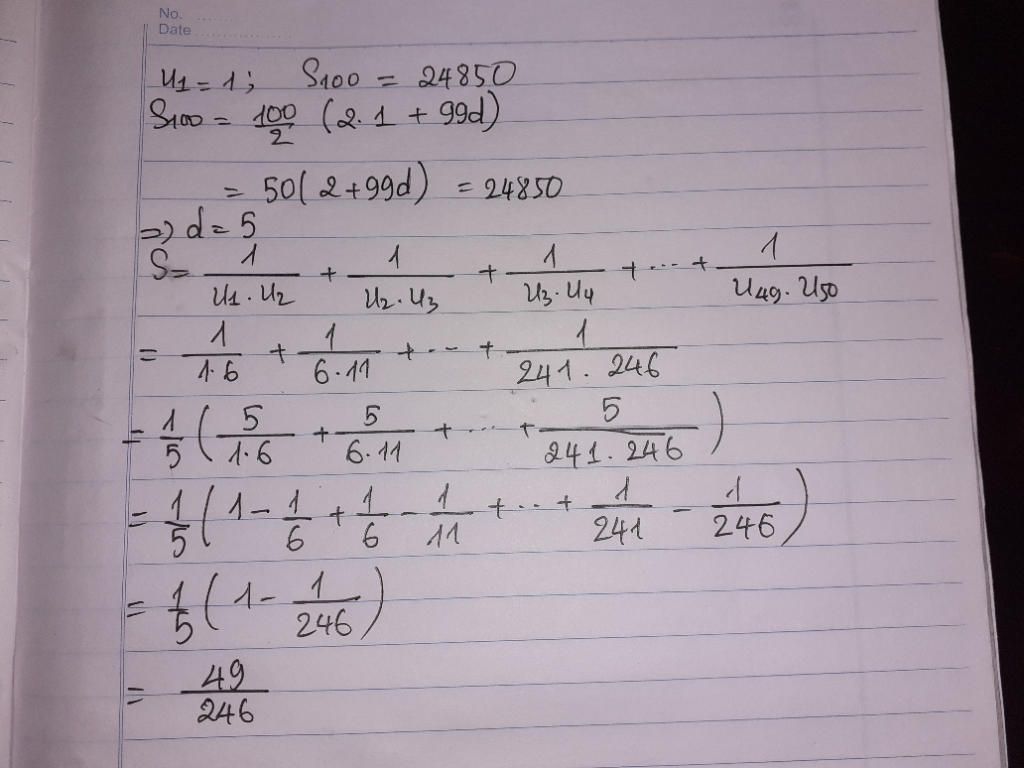 No. ........
Date ................
u₁ = 1; S₁₀₀ = 24850
S₁₀₀ = 100/2 (2.1 + 99d)
= 50(2+99d) = 24850
=> d = 5
S = 1/(u₁.u₂) + 1/(u₂.u₃) + 1/(u₃.u₄) + ... + 1/(u₄₉.u₅₀)
= 1/(1.6) + 1/(6.11) + ... + 1/(241.246)
= 1/5 (5/(1.6) + 5/(6.11) + ... + 5/(241.246))
= 1/5 (1 - 1/6 + 1/6 - 1/11 + ... + 1/241 - 1/246)
= 1/5 (1 - 1/246)
= 49/246